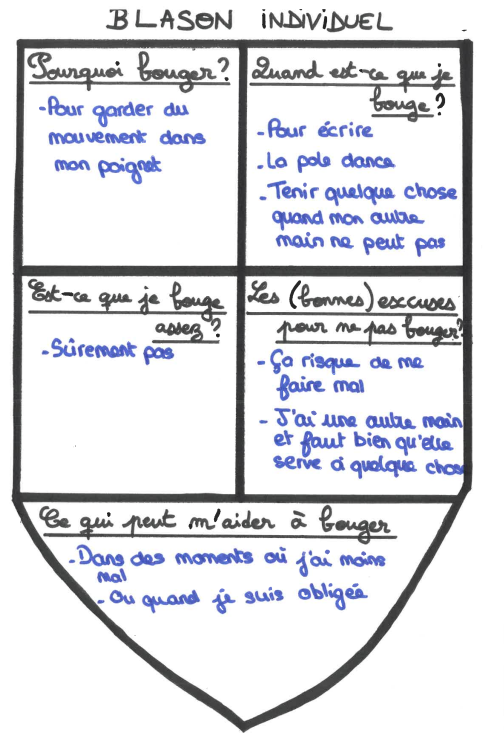 BLASON INDIVIDUEL
Pourquoi bouger?
-Pour garder du
mouvement dans
mon poignet
Quand est-ce que je
bouge?
-Pour écrire
-La pole dance
-Tenir quelque chose
quand mon autre
main ne peut pas
Est-ce que je bouge
assez?
-Sûrement pas
Les (bonnes) excuses
pour ne pas bouger?
-Ça risque de me
faire mal
-J'ai une autre main
et faut bien qu'elle
serve à quelque chose
Ce qui peut m'aider à bouger
-Dans des moments où j'ai moins
mal
-Ou quand je suis obligée